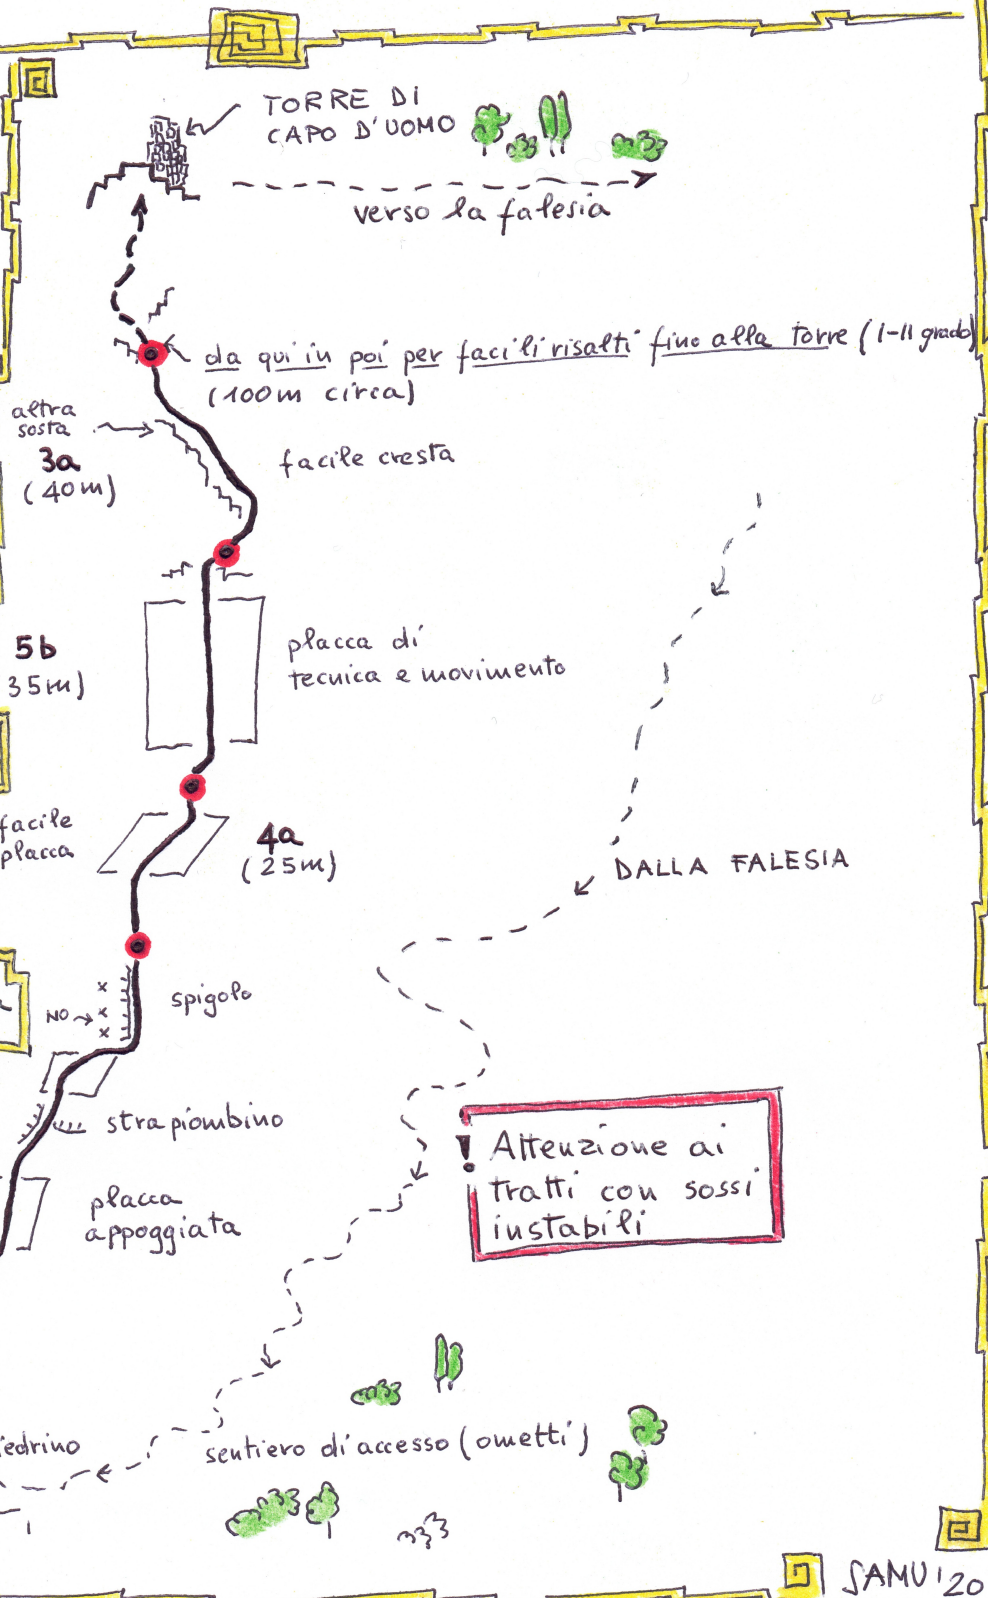 TORRE DI
CAPO D'UOMO
verso la falesia
da qui in poi per facili risalti fino alla torre (I-II grado)
(100m circa)
altra
sosta
3a
(40m)
facile cresta
5b
35m)
placca di
tecnica e movimento
facile
placca
4a
(25m)
DALLA FALESIA
spigolo
NO
strapiombino
! Attenzione ai
tratti con sossi
instabili
placca
appoggiata
iedrino
sentiero di accesso (ometti)
SAMU '20